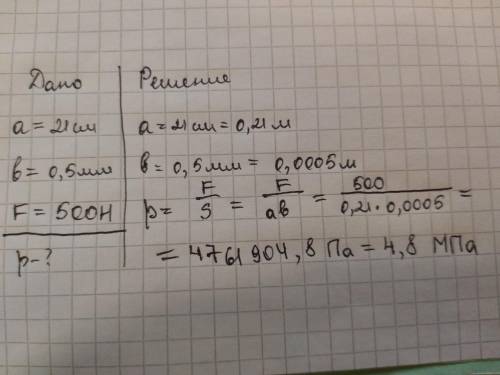 Дано
Решение
a = 21 см
a = 21 см = 0,21 м
b = 0,5 мм
b = 0,5 мм = 0,0005 м
F = 500 Н
p = F/S = F/ab = 500/0,21·0,0005 =
p - ?
= 4761904,8 Па = 4,8 МПа